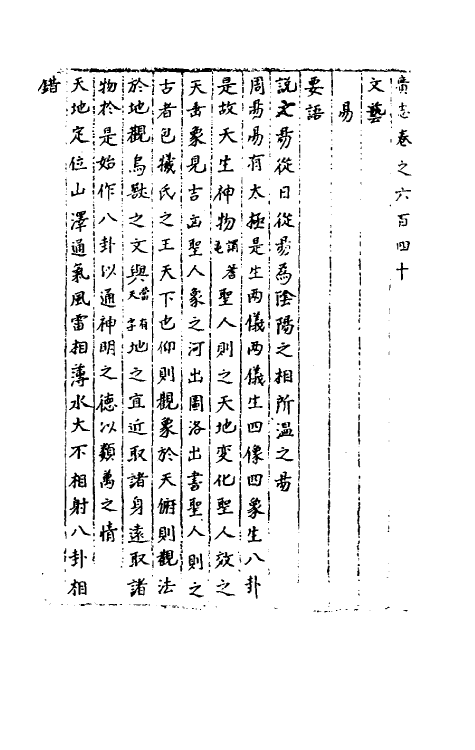 廣志卷之六百四十
文藝
易
要語
説文易從日從易為陰陽之相所溫之易
周易易有太極是生兩儀兩儀生四像四象生八卦
是故天生伸物謂蓍龜聖人則之天地变化聖人效之
天垂象見吉凶聖人象之河出圖洛出書聖人則之
古者包犧氏之王天下也仰則觀象於天俯則觀法
於地觀鳥獸之文與當有天字地之宜近取諸身遠取諸
物於是始作八卦以通神明之德以類萬之情
天地定位山澤通氣風雷相薄水大不相射八卦相
錯